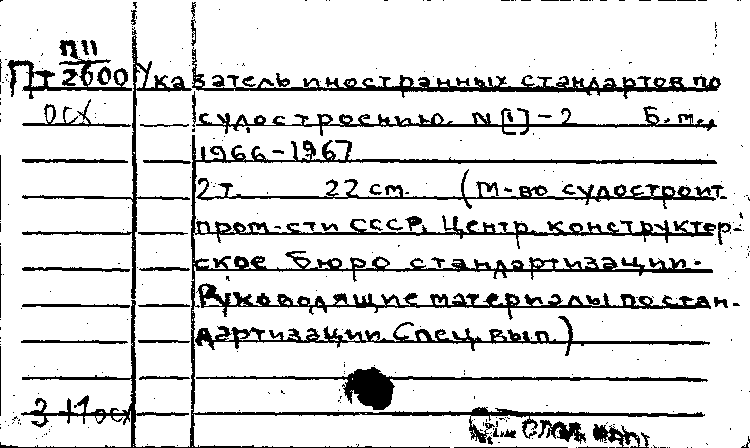 ПII
Пт 2600 Указатель иностранных стандартов по
ОСХ судостроению. N[1]-2 Б.м.,
1966-1967
2т. 22 см. (М-во судостроит.
пром-сти СССР. Центр. конструктор-
ское бюро стандартизации.
Руководящие материалы по стан-
дартизации. Спец. вып.)